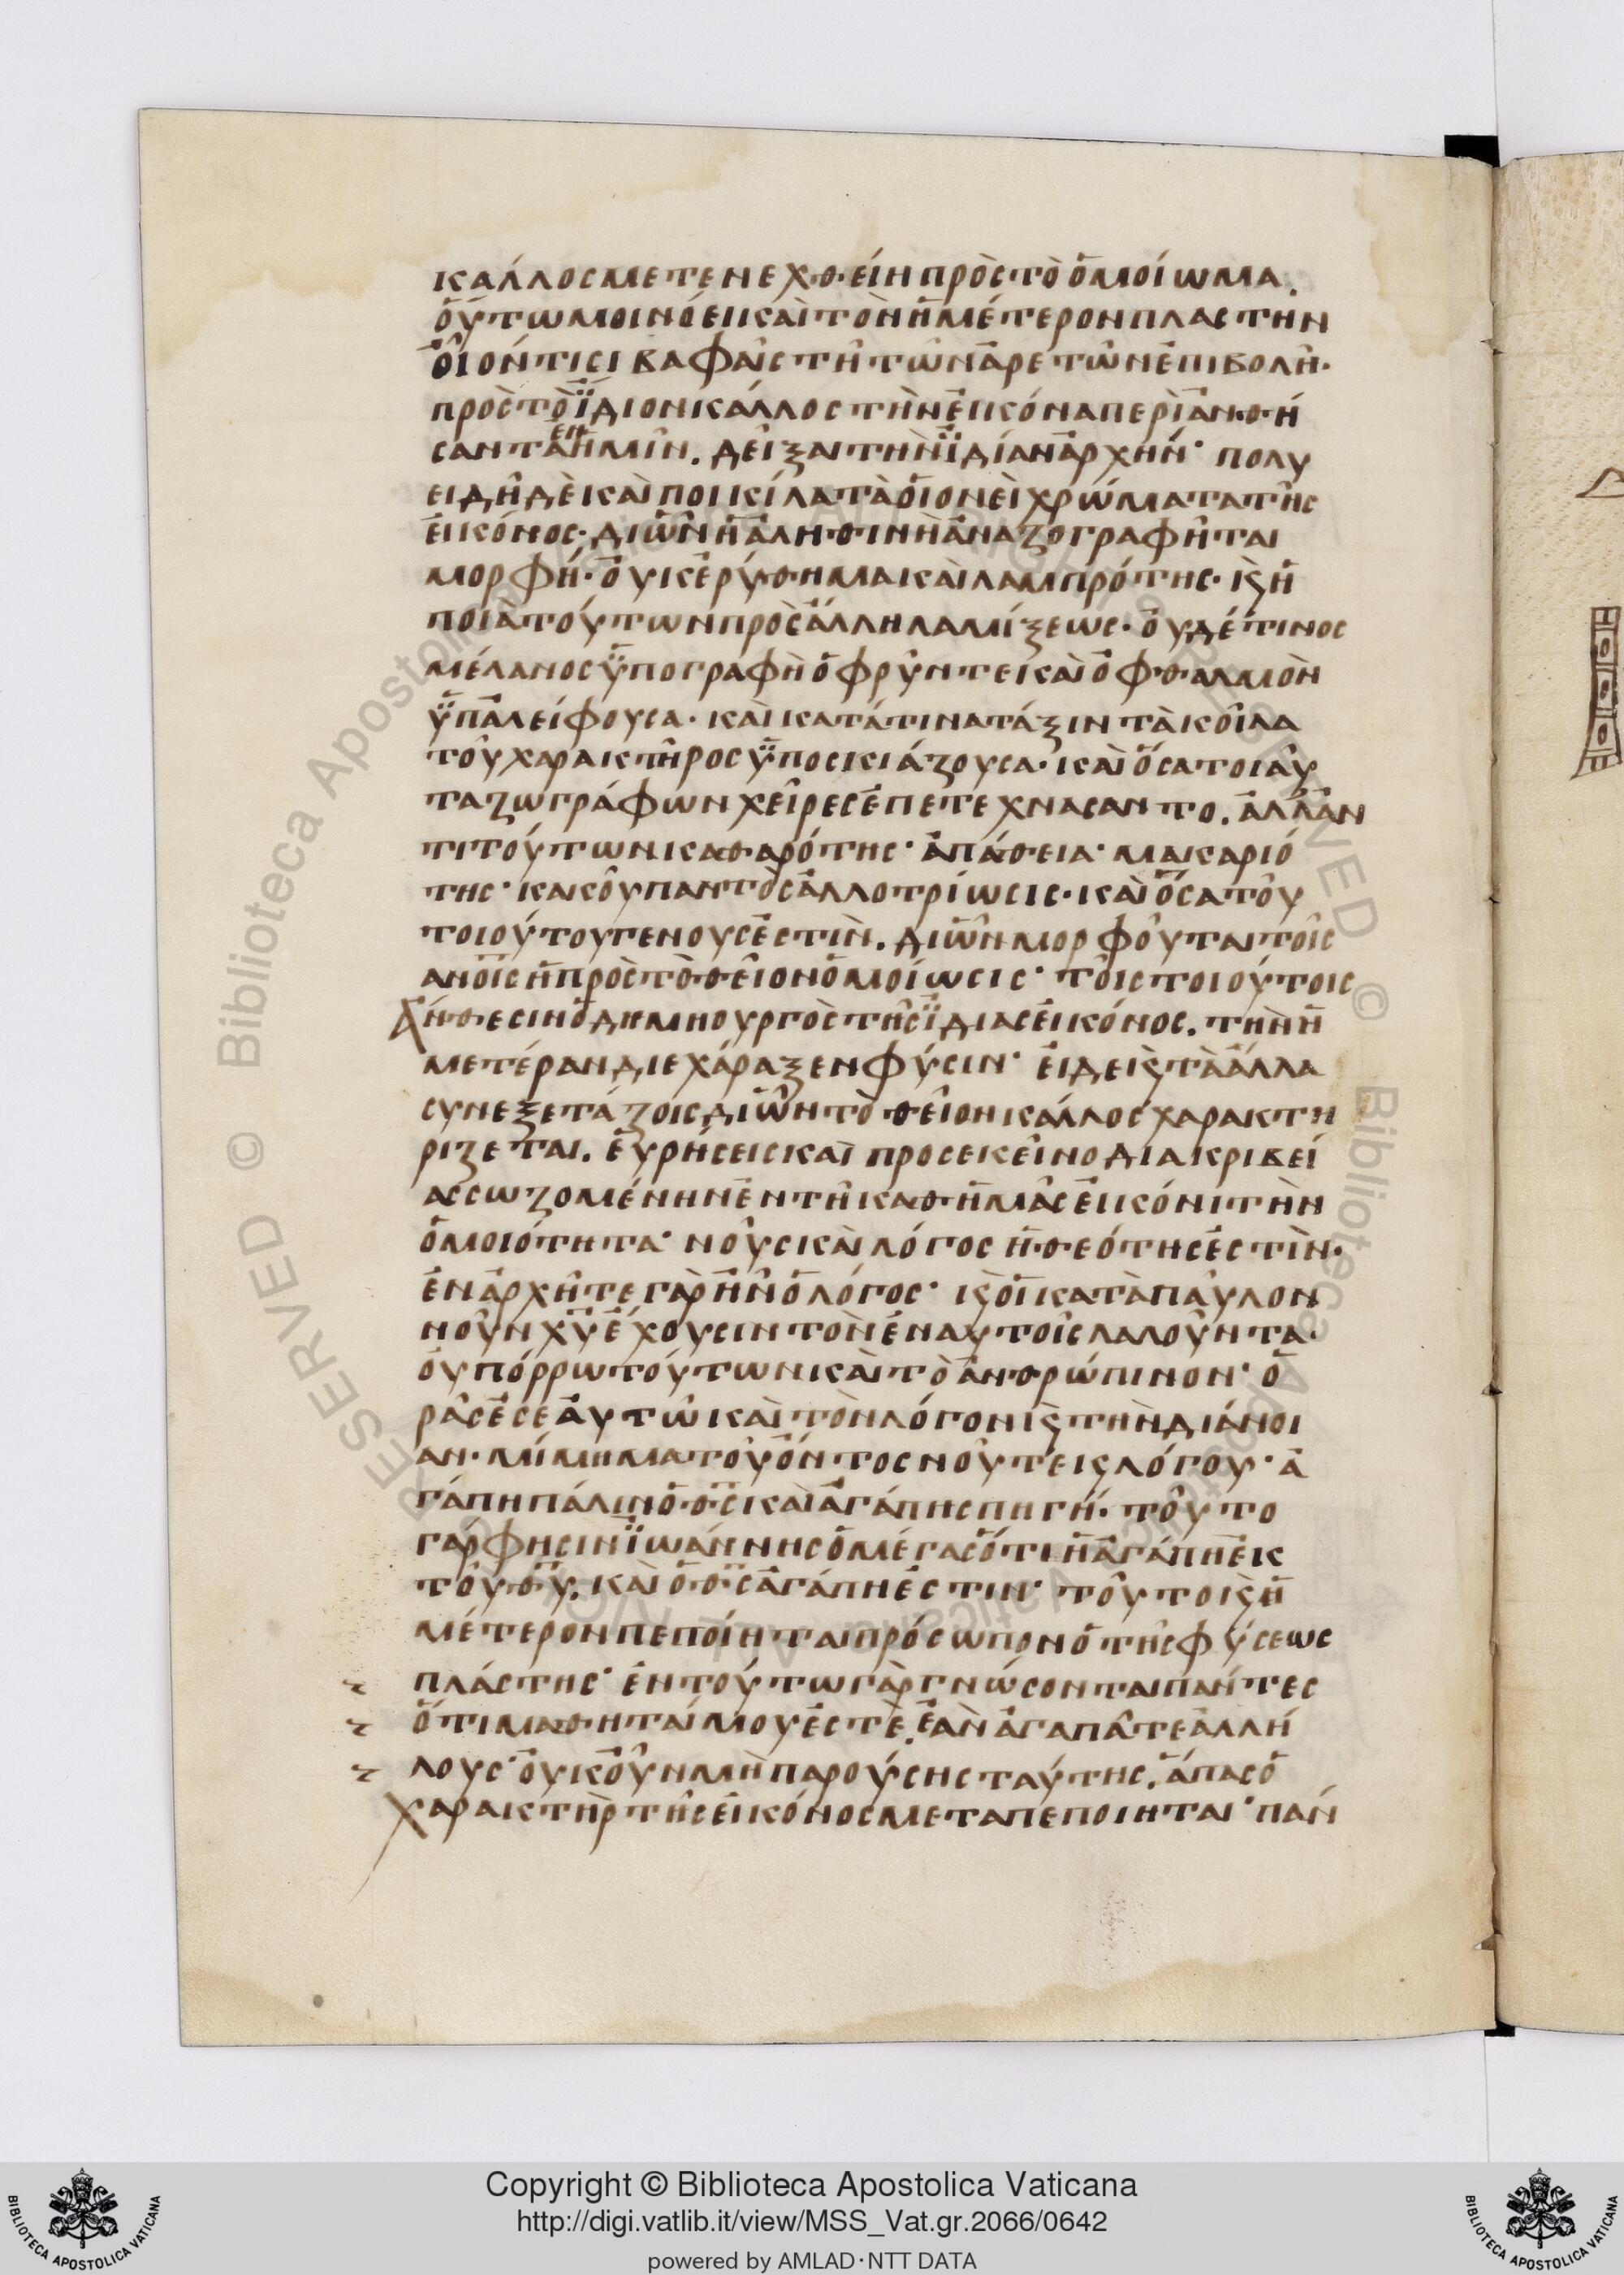 κάλλος μετενεχθείη πρὸς τὸ ὁμοίωμα.
οὕτω μοι νόει καὶ τὸν ἡμέτερον πλάστην
οἱονήτισι βαφαῖς τῆ τῶν ἀρετῶν ἐπιβολῆ·
πρὸς τὸ ἴδιον κάλλος τὴν εἰκόνα περϊανθή
σαντα ἐν ἡμῖν. δεῖξαι τὴν ϊδίαν ἀρχήν· πολυ
ειδῆ δὲ καὶ ποικίλα τὰ οἱονεὶ χρώματα τῆς
εἰκόνος· δι ὧν ἡ ἀληθινὴ ἀναζογραφῆται
μορφή· οὐκ ἐρύθημα καὶ λαμπρότης· κ ἡ
ποιὰ τούτων πρὸς ἄλληλα μίξεως· οὐδέ τινος
μέλανος ὑπογραφὴ ὀφρύν τε καὶ ὀφθαλμὸν
ὑπαλείφουσα· καὶ κατά τινα τάξιν τὰ κοῖλα
τοῦ χαρακτῆρος ὑποσκιάζουσα· καὶ ὅσα τοιαῦ
τα ζωγράφων χεῖρες ἐπετεχνάσαντο. ἀλλ ἀν
τι τούτων καθαρότης· ἀπάθεια· μακαριό
της· κακοῦ παντὸς ἀλλοτρίωσις· καὶ ὅσα τοῦ
τοιούτου γένους ἐστὶν. δι ὧν μορφοῦται τοῖς
ανοις ἡ πρὸς τὸ θεῖον ὁμοίωσις· τοῖς τοιούτοις
ἄνθεσιν ὁ δημηουργὸς τῆς ϊδίας εἰκόνος. τὴν ἡ
μετέραν διεχάραξεν φύσιν· εἰ δε κ τὰ ἄλλα
συνεξετάζοις δι ὧν τὸ θεῖον κάλλος χαρακτη
ρίζεται. εὑρήσεις καὶ προς ἐκεῖνο δι ακριβεί
ας σωζομένην ἐν τῆ καθ ἡμᾶς εἰκόνι τὴν
ὁμοιότητα· νοῦς καὶ λόγος ἡ θεότης ἐστὶν·
ἐν ἀρχῆ τε γὰρ ἦν ὁ λόγος· κ οἱ κατὰ παῦλον
νοῦν χυ ἔχουσιν τὸν ἐν αυτοῖς λαλοῦντα·
οὐ πόρρω τούτων καὶ τὸ ἀνθρώπινον· ὁ
ρᾶς ἐσεαυτῶ καὶ τὸν λόγον κ τὴν διάνοι
αν· μίμημα τοῦ ὄντος νοῦ τε κ λόγου· ἀ
γάπη πάλιν ὁ θς καὶ ἀγάπης πηγή· τοῦτο
γάρ φησιν ϊωάννης ὁ μέγας ὅτι ἡ ἀγάπη ἐκ
τοῦ θυ. καὶ ὁ θς ἀγάπη ἐστιν· τοῦτο κ ἡ
μέτερον πεποίηται πρόσωπον ὁ τῆς φύσεως
πλάστης· ἐν τούτω γὰρ γνώσονται πάντες
ὅτι μαθηταί μου ἐστὲ. ἐὰν ἀγαπᾶτε ἀλλή
λους· οὐκοῦν μὴ παρούσης ταύτης. ἅπας ὁ
χαρακτὴρ τῆς εἰκόνος μεταπεποιηται· πάν
RESERVED © Biblioteca Apostolica Vaticana
Copyright © Biblioteca Apostolica Vaticana
http://digi.vatlib.it/view/MSS_Vat.gr.2066/0642
powered by AMLAD·NTT DATA
BIBLIOTECA APOSTOLICA VATICANA
BIBLIOTECA APOSTOLICA VATICANA